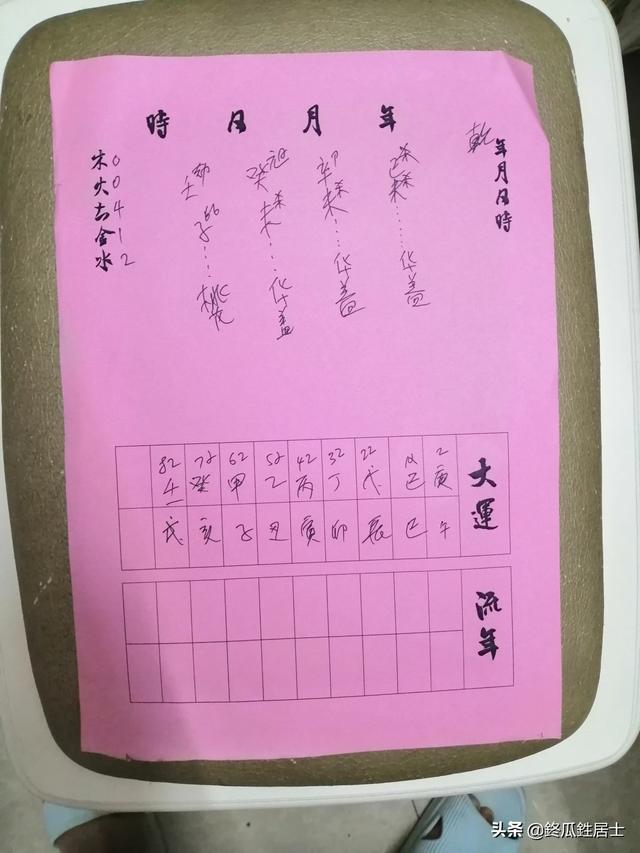 乾年月日時
年 月 日 時
己未……华盖
辛未…华盖
癸未…华盖
壬子…桃花
木0
火0
土4
金1
水2
大運
2 12 22 32 42 52 62 72 82
庚 己 戊 丁 丙 乙 甲 癸 壬
午 巳 辰 卯 寅 丑 子 亥 戌
流年
头条 @终瓜甡居士